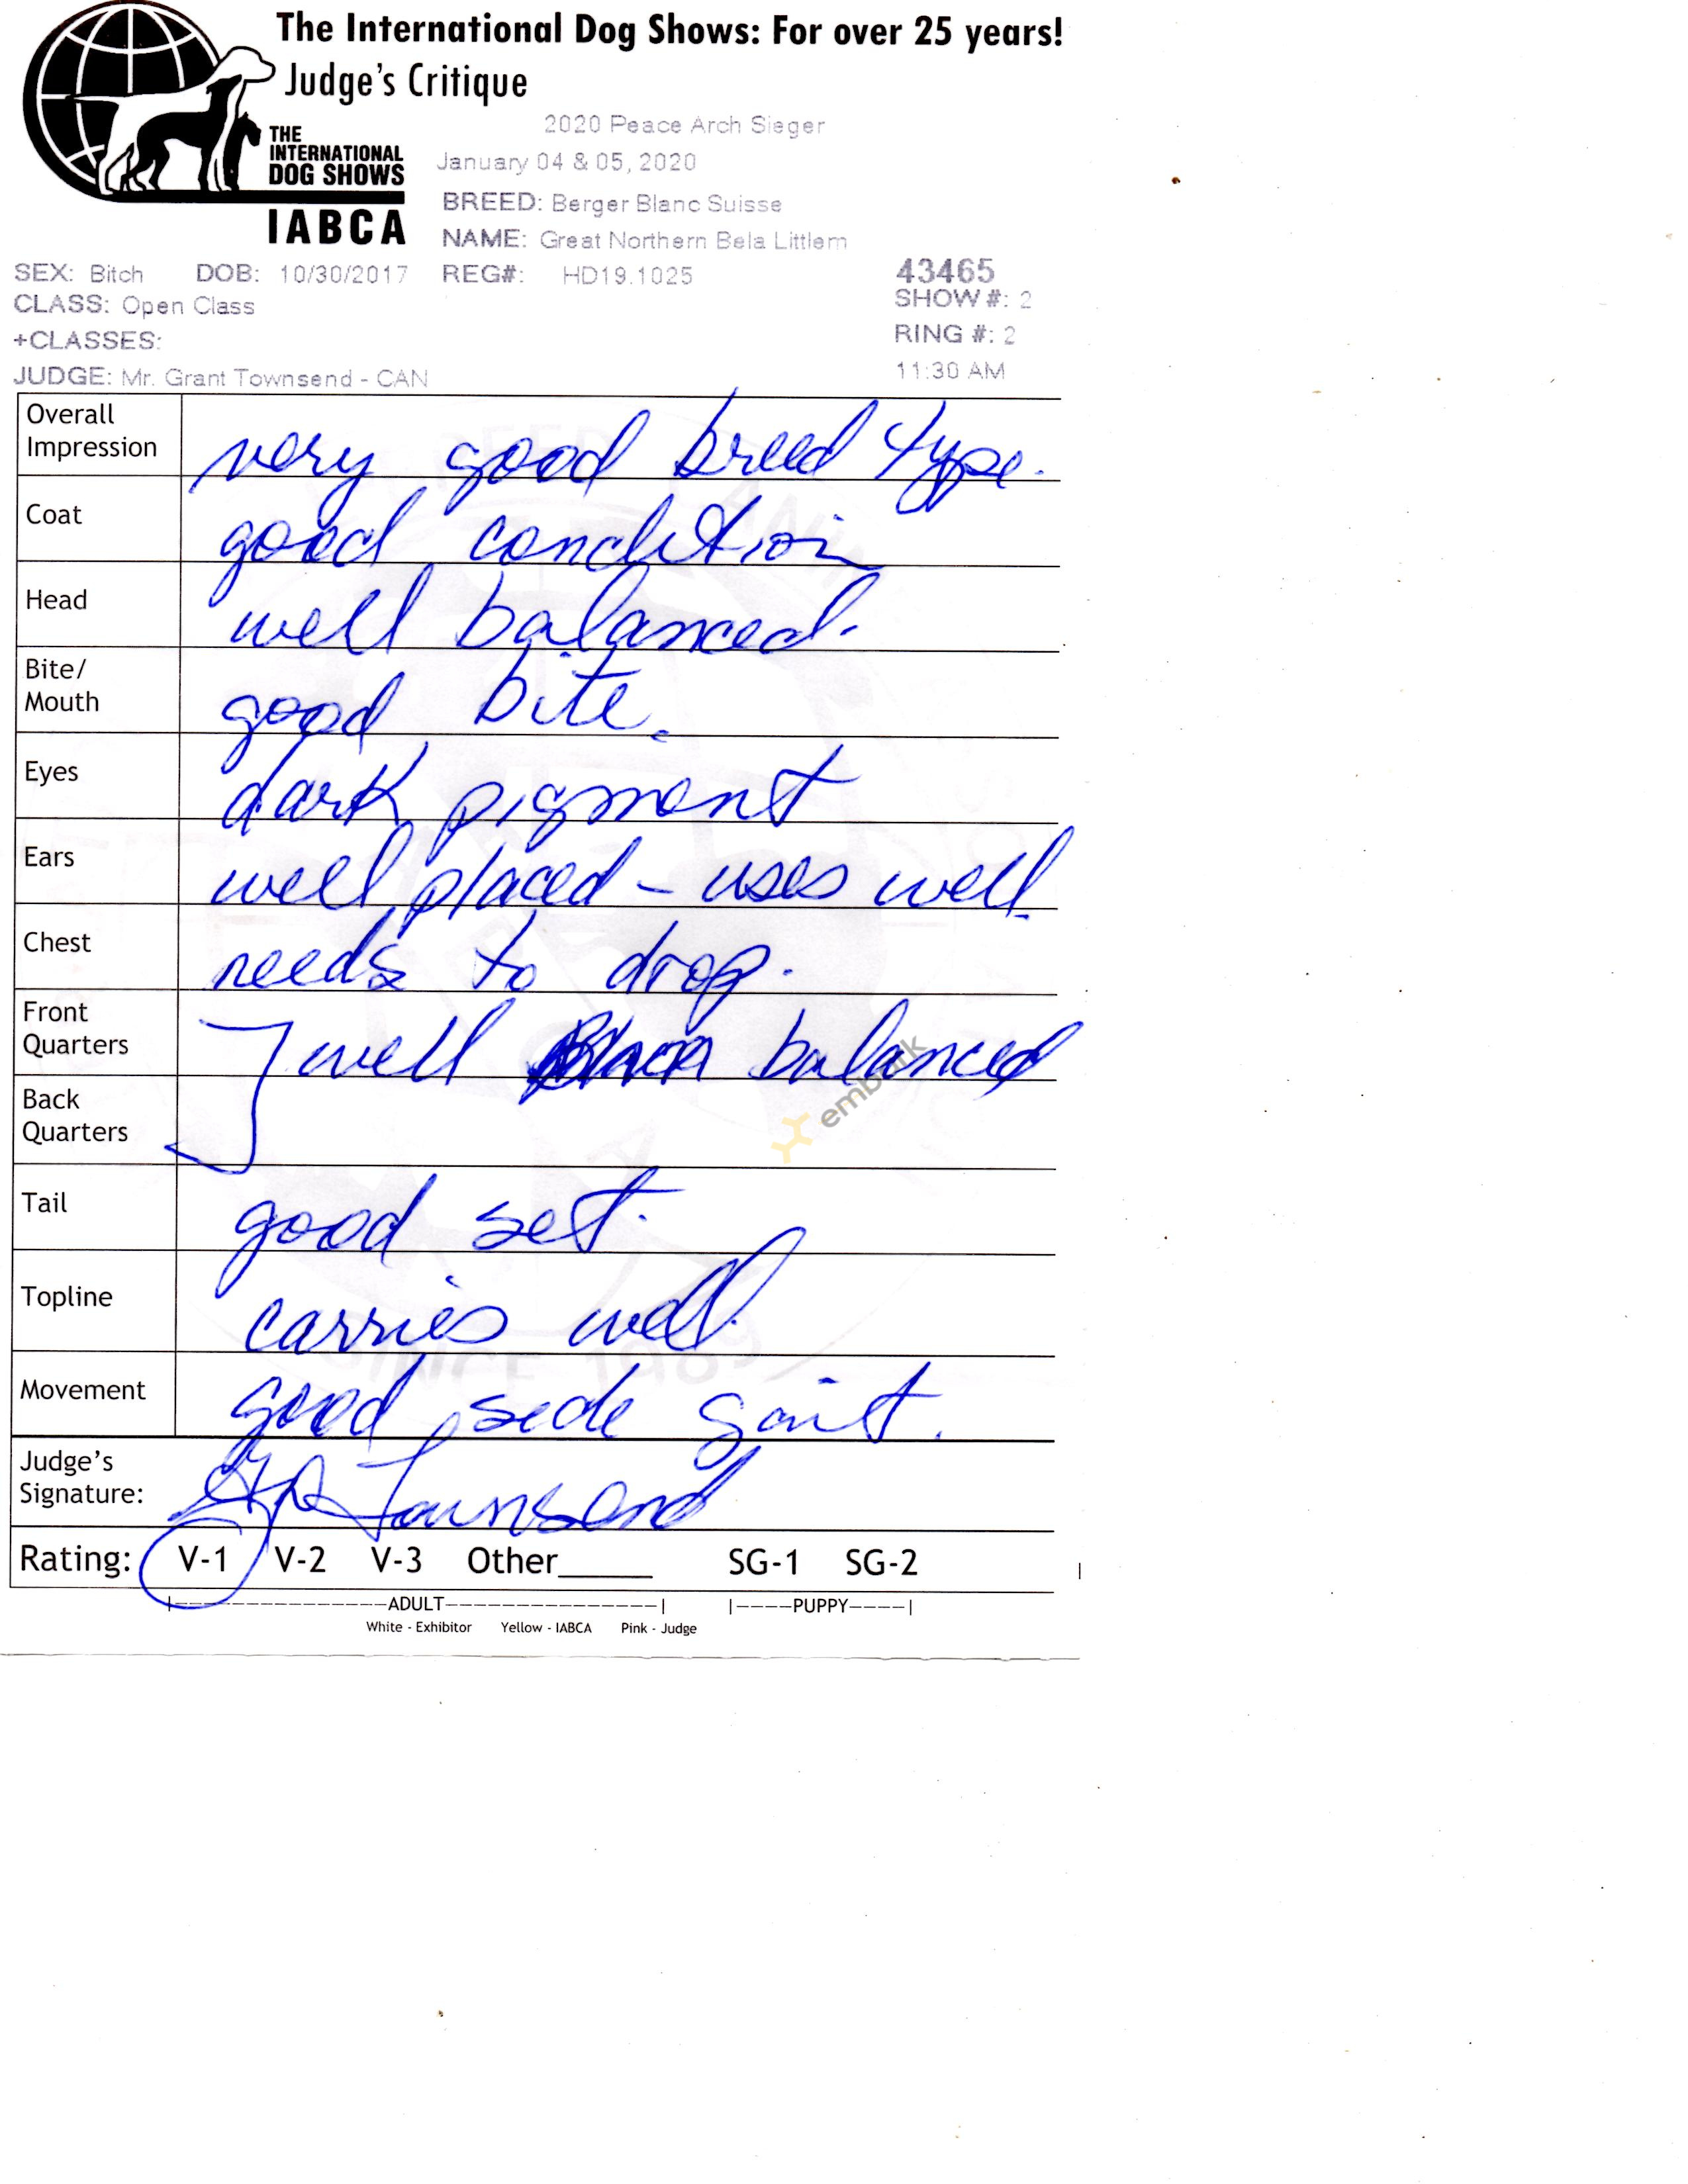 The International Dog Shows: For over 25 years!
Judge's Critique
THE
INTERNATIONAL
DOG SHOWS
IABCA
2020 Peace Arch Sieger
January 04 & 05, 2020
BREED: Berger Blanc Suisse
NAME: Great Northern Bela Littlem
SEX: Bitch DOB: 10/30/2017 REG#: HD19.1025 43465
CLASS: Open Class SHOW #: 2
+CLASSES: RING #: 2
JUDGE: Mr. Grant Townsend - CAN 11:30 AM
Overall
Impression very good breed type.
Coat good condition
Head well balanced.
Bite/
Mouth good bite.
Eyes dark pigment
Ears well placed - uses well.
Chest needs to drop.
Front
Quarters well balanced
Back
Quarters
embark
Tail good set.
Topline carries well.
Movement good side gait.
Judge's
Signature: Townsend
Rating: V-1 V-2 V-3 Other_____ SG-1 SG-2
|-----ADULT-----| |----PUPPY----|
White - Exhibitor Yellow - IABCA Pink - Judge